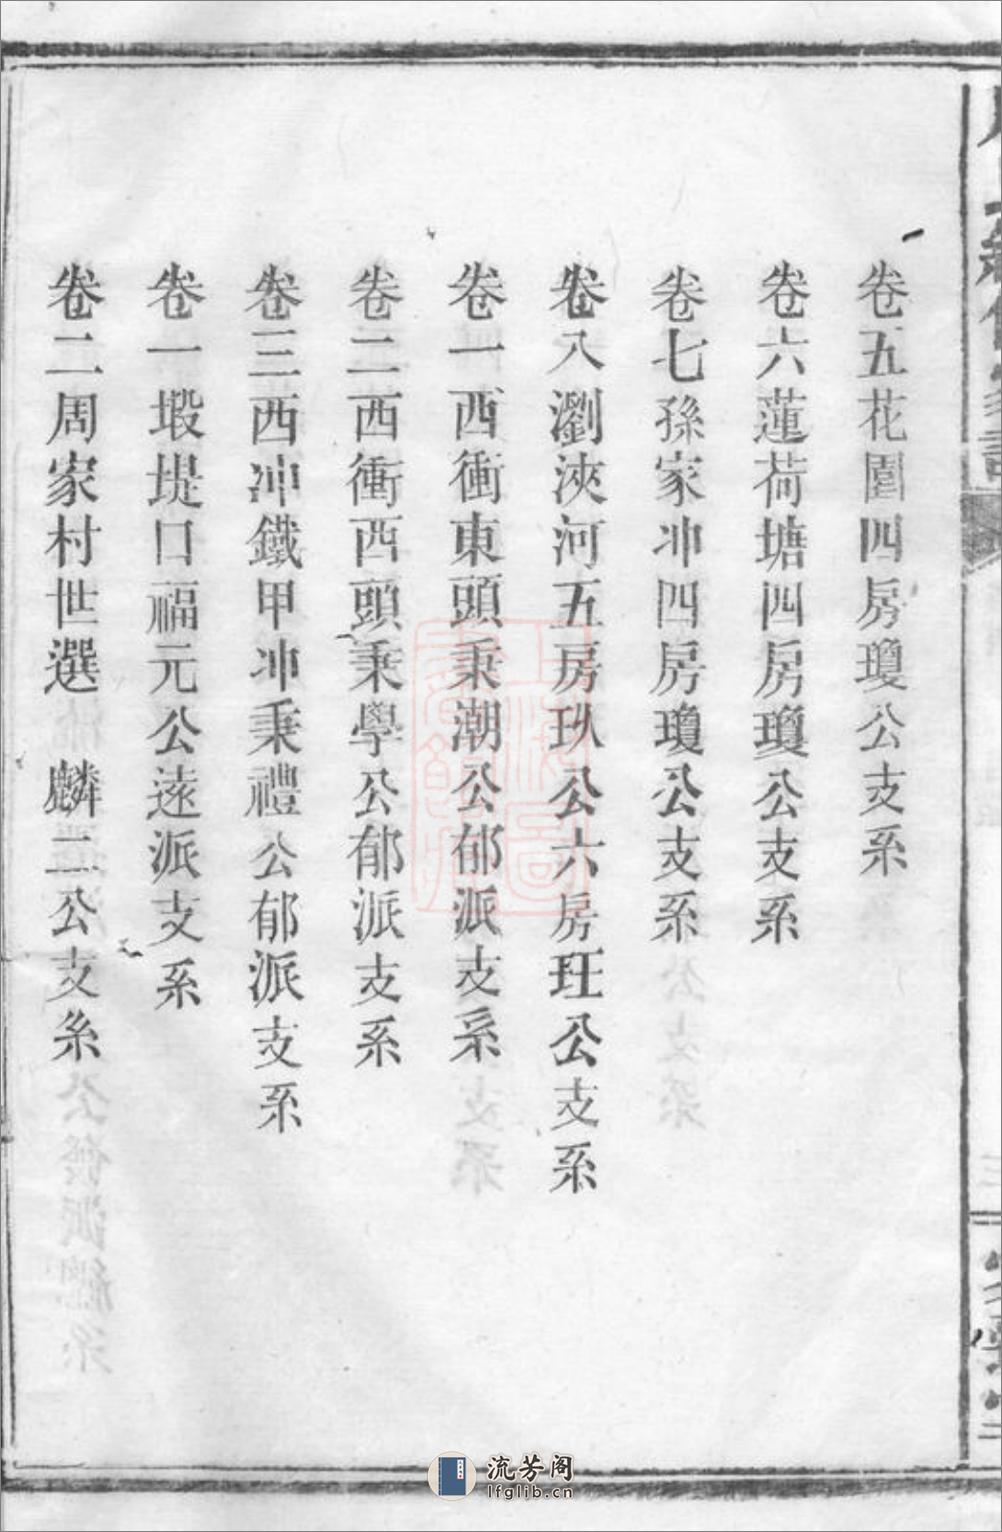 卷五花園四房瓊公支系
卷六蓮荷塘四房瓊公支系
卷七孫家冲四房瓊公支系
卷八瀏浹河五房玖公六房玨公支系
卷一西衝東頭秉潮公郁派支系
卷二西衝西頭秉學公郁派支系
卷三西冲鐵甲冲秉禮公郁派支系
卷一塅堤口福元公遠派支系
卷二周家村世選 麟二公支系
上海圖書館藏
流芳阁
lfglib.cn